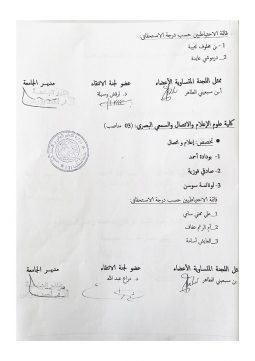 قائمة الاحتياطيين حسب درجة الاستحقاق
1- بن مخلوف نجية
2- دربوشي عايدة
ممثل اللجنة المتساوية الأعضاء عضو لجنة الانتقاء مدير الجامعة
بن سبعيني الطاهر د. لرقش وسيلة
كلية علوم الإعلام والاتصال والسمعي البصري: (03 مناصب)
تخصص: إعلام و اتصال
1- بودادة أحمد
2- صادقي فوزية
3- لونانسة سوسن
قائمة الاحتياطيين حسب درجة الاستحقاق
1- علي محي سامي
2- أم الرتم عفاف
3- العايش أسامة
ممثل اللجنة المتساوية الأعضاء عضو لجنة الانتقاء مدير الجامعة
بن سبعيني الطاهر د. دراج عبد الله